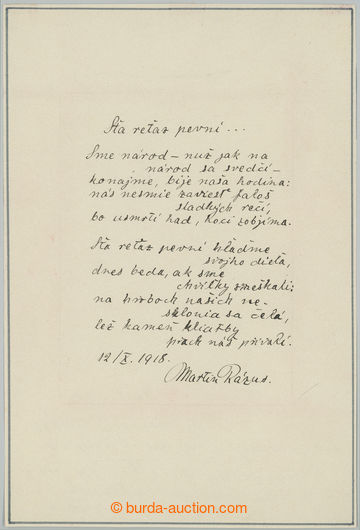 Sťa reťaz pevní...
Sme národ – nuž jak na
národ sa svedčí –
konajme, bije naša hodina:
nás nesmie zaviesť faloš
sladkých rečí,
bo usmrtí had, hoci zobjíma.
Sťa reťaz pevní hľaďme
svojho dieťa,
dnes beda, ak sme
chvíľky zmeškali:
na hrboch našich ne-
sklonia sa čelá,
lež kameň kliatby
prach náš privalí.
12/X. 1918.
Martin Rázus.
© burda-auction.com